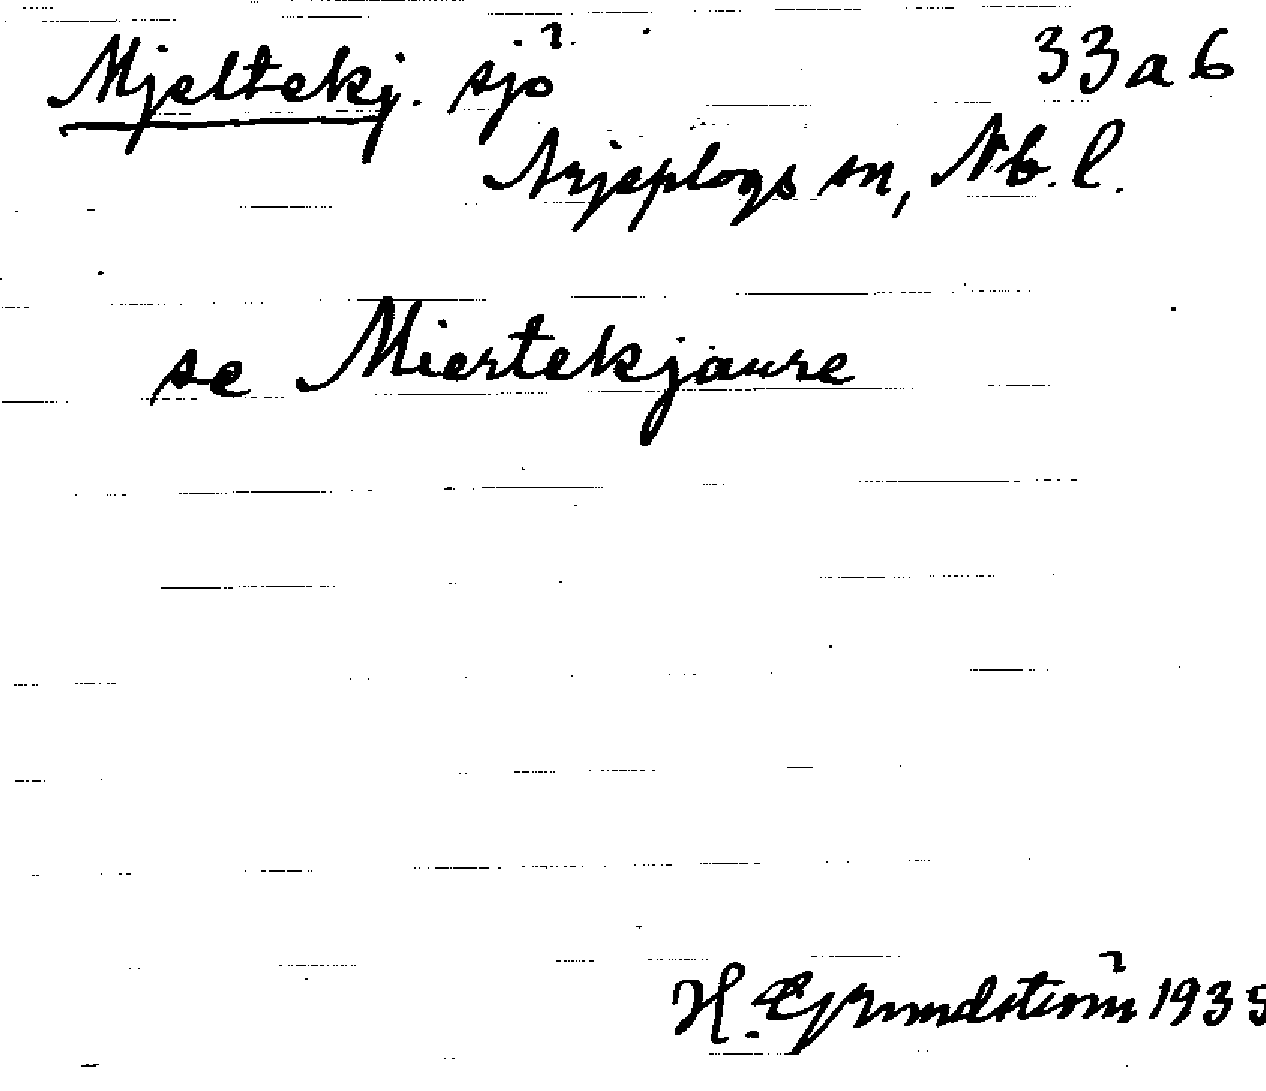 Mjeltekj. sjö 33 a 6
Arjeplogs sn, Nb. l.
se Miertekjaure
H. Grundström 1935